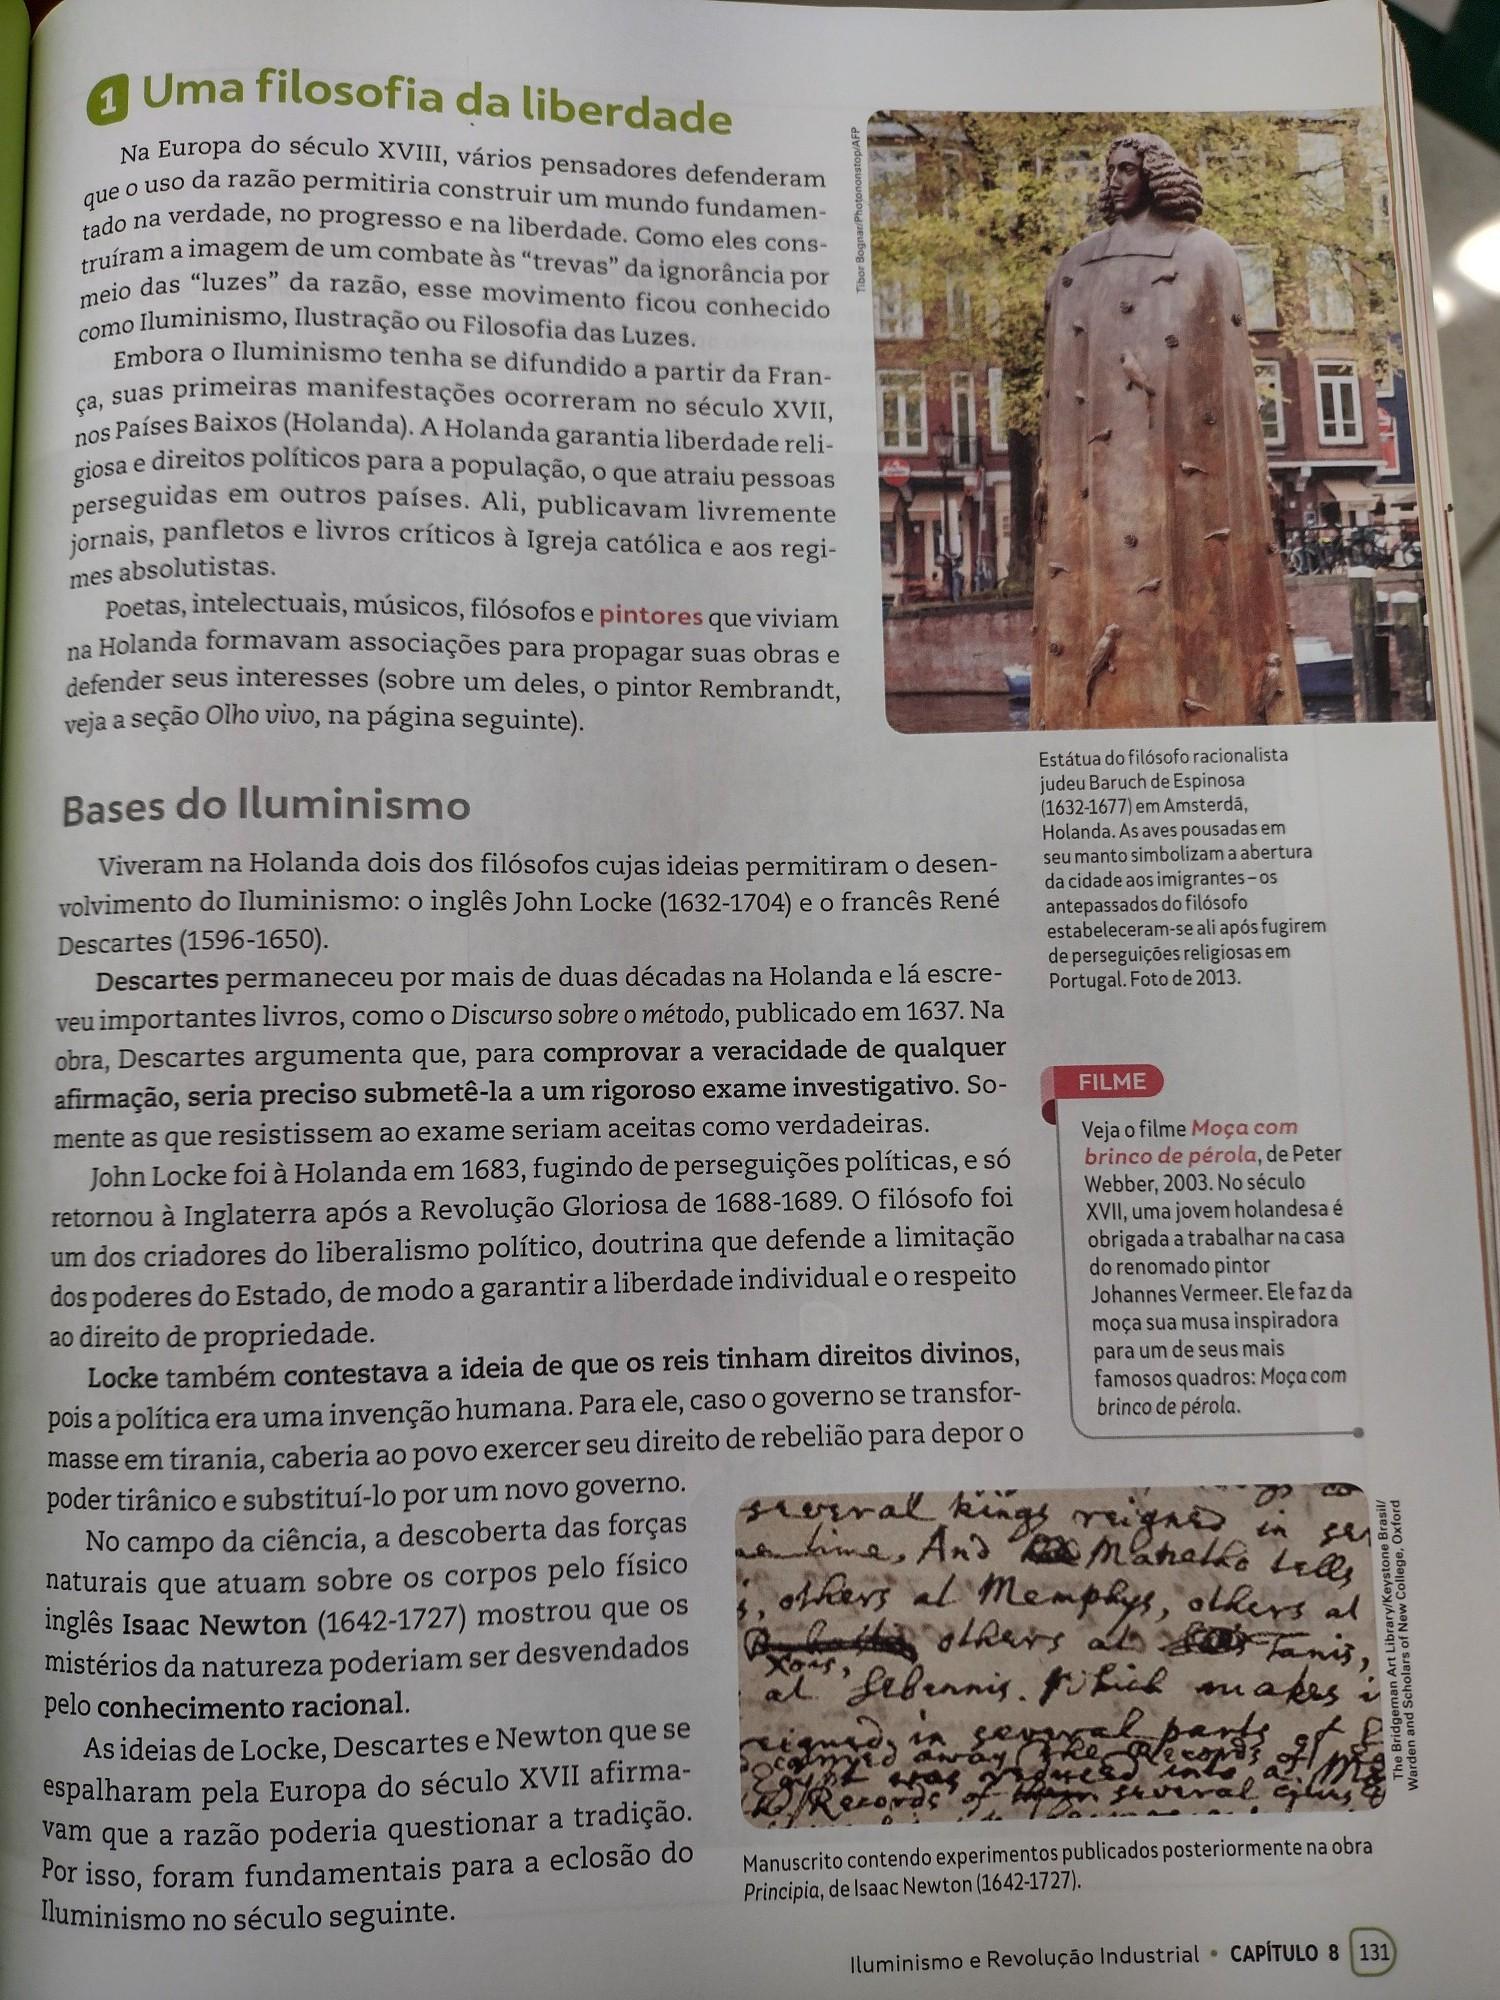 1 Uma filosofia da liberdade
Na Europa do século XVIII, vários pensadores defenderam
que o uso da razão permitiria construir um mundo fundamen-
tado na verdade, no progresso e na liberdade. Como eles cons-
truíram a imagem de um combate às “trevas” da ignorância por
meio das “luzes” da razão, esse movimento ficou conhecido
como Iluminismo, Ilustração ou Filosofia das Luzes.
Embora o Iluminismo tenha se difundido a partir da Fran-
ça, suas primeiras manifestações ocorreram no século XVII,
nos Países Baixos (Holanda). A Holanda garantia liberdade reli-
giosa e direitos políticos para a população, o que atraiu pessoas
perseguidas em outros países. Ali, publicavam livremente
jornais, panfletos e livros críticos à Igreja católica e aos regi-
mes absolutistas.
Poetas, intelectuais, músicos, filósofos e pintores que viviam
na Holanda formavam associações para propagar suas obras e
defender seus interesses (sobre um deles, o pintor Rembrandt,
veja a seção Olho vivo, na página seguinte).
Tibor Bognar/Photononstop/AFP
Estátua do filósofo racionalista
judeu Baruch de Espinosa
(1632-1677) em Amsterdã,
Holanda. As aves pousadas em
seu manto simbolizam a abertura
da cidade aos imigrantes – os
antepassados do filósofo
estabeleceram-se ali após fugirem
de perseguições religiosas em
Portugal. Foto de 2013.
Bases do Iluminismo
Viveram na Holanda dois dos filósofos cujas ideias permitiram o desen-
volvimento do Iluminismo: o inglês John Locke (1632-1704) e o francês René
Descartes (1596-1650).
Descartes permaneceu por mais de duas décadas na Holanda e lá escre-
veu importantes livros, como o Discurso sobre o método, publicado em 1637. Na
obra, Descartes argumenta que, para comprovar a veracidade de qualquer
afirmação, seria preciso submetê-la a um rigoroso exame investigativo. So-
mente as que resistissem ao exame seriam aceitas como verdadeiras.
John Locke foi à Holanda em 1683, fugindo de perseguições políticas, e só
retornou à Inglaterra após a Revolução Gloriosa de 1688-1689. O filósofo foi
um dos criadores do liberalismo político, doutrina que defende a limitação
dos poderes do Estado, de modo a garantir a liberdade individual e o respeito
ao direito de propriedade.
Locke também contestava a ideia de que os reis tinham direitos divinos,
pois a política era uma invenção humana. Para ele, caso o governo se transfor-
masse em tirania, caberia ao povo exercer seu direito de rebelião para depor o
poder tirânico e substituí-lo por um novo governo.
No campo da ciência, a descoberta das forças
naturais que atuam sobre os corpos pelo físico
inglês Isaac Newton (1642-1727) mostrou que os
mistérios da natureza poderiam ser desvendados
pelo conhecimento racional.
As ideias de Locke, Descartes e Newton que se
espalharam pela Europa do século XVII afirma-
vam que a razão poderia questionar a tradição.
Por isso, foram fundamentais para a eclosão do
Iluminismo no século seguinte.
FILME
Veja o filme Moça com
brinco de pérola, de Peter
Webber, 2003. No século
XVII, uma jovem holandesa é
obrigada a trabalhar na casa
do renomado pintor
Johannes Vermeer. Ele faz da
moça sua musa inspiradora
para um de seus mais
famosos quadros: Moça com
brinco de pérola.
several kings reigned in
time, And Manetho tells
others at Memphys, others at
others at Tanis,
Xois,
at Sebennis. Which makes
reigned in several parts of
carried away the Records of
was reduced into a
Records of several
The Bridgeman Art Library/Keystone Brasil/
Warden and Scholars of New College, Oxford
Manuscrito contendo experimentos publicados posteriormente na obra
Principia, de Isaac Newton (1642-1727).
Iluminismo e Revolução Industrial • CAPÍTULO 8 131